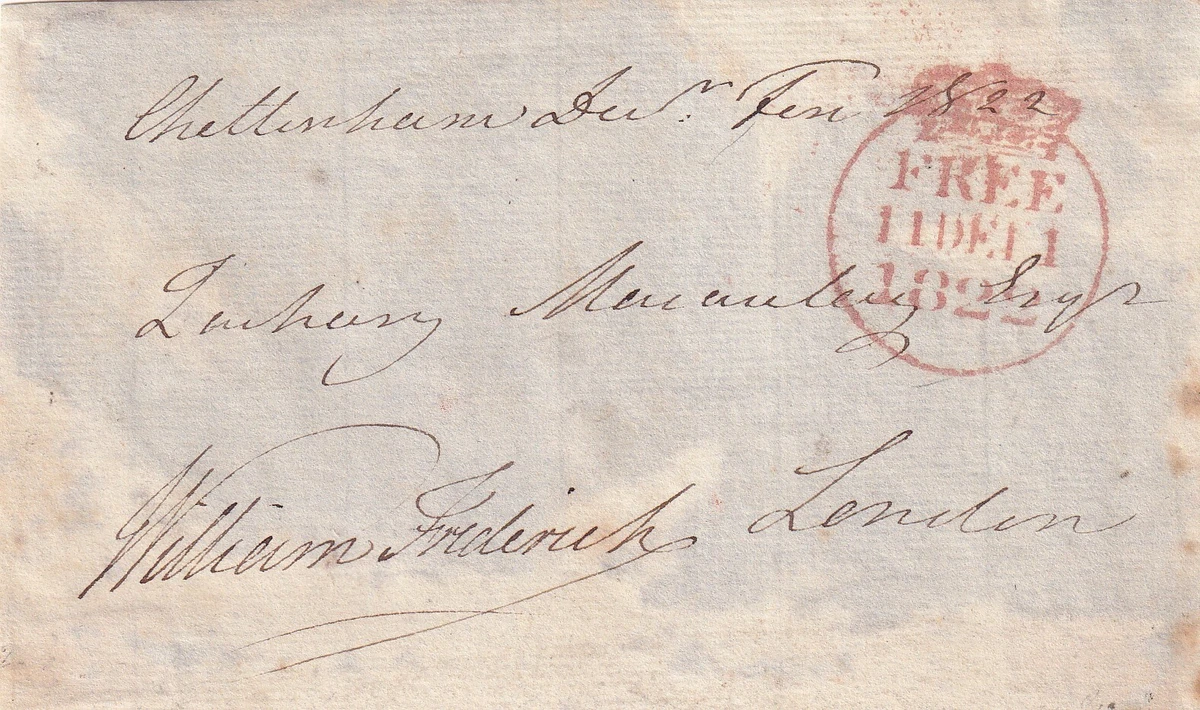 Cheltenham Decr. Ten 1822
FREE
11 DE 11
1822
Zachary Macaulay Esqr
London
William Frederick